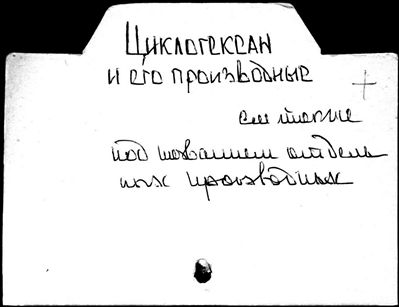 Циклогексан
и его производные
+
см также
под названием отдель
ных производных